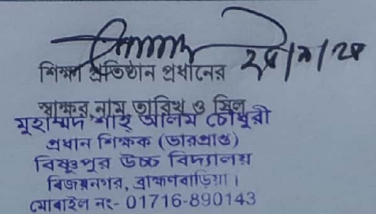 ২৪/৯/২৪
শিক্ষা প্রতিষ্ঠান প্রধানের
স্বাক্ষর,নাম তারিখ ও সিল
মুহাম্মদ শাহ্ আলম চৌধুরী
প্রধান শিক্ষক (ভারপ্রাপ্ত)
বিষ্ণুপুর উচ্চ বিদ্যালয়
বিজয়নগর, ব্রাহ্মণবাড়িয়া।
মোবাইল নং- 01716-890143